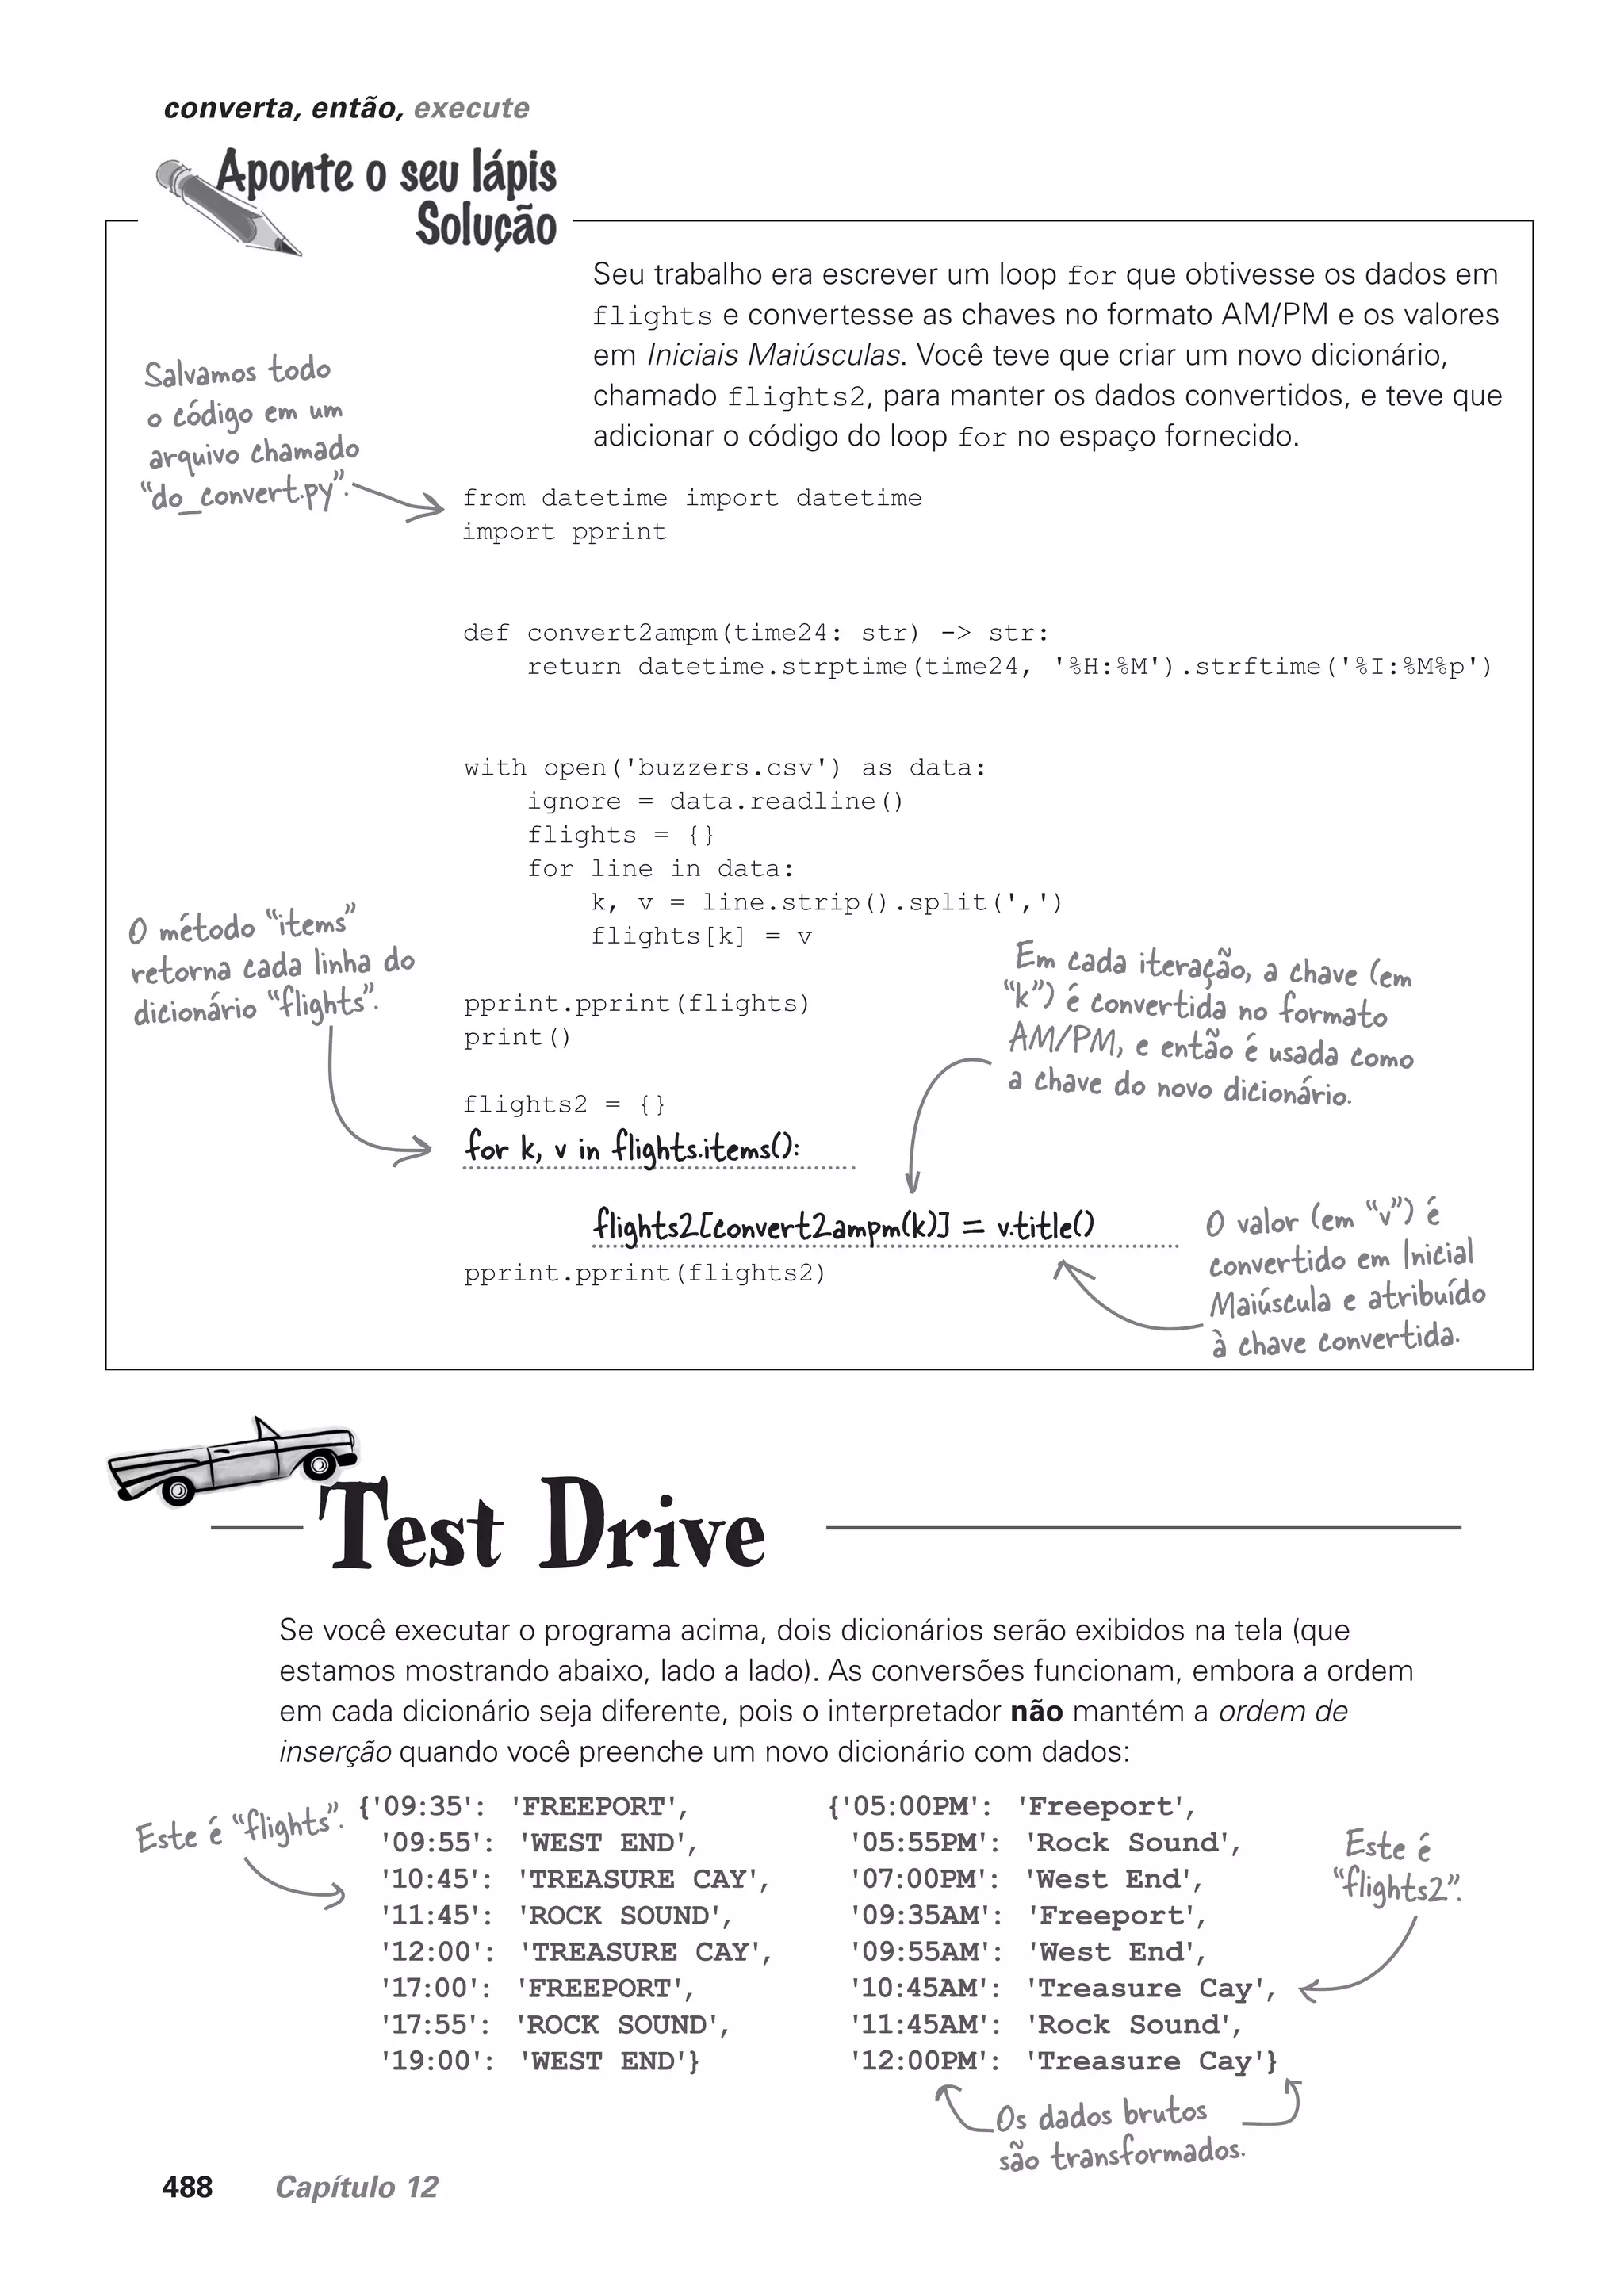 converta, então, execute
Aponte o seu lápis
Solução
Seu trabalho era escrever um loop for que obtivesse os dados em
flights e convertesse as chaves no formato AM/PM e os valores
em Iniciais Maiúsculas. Você teve que criar um novo dicionário,
chamado flights2, para manter os dados convertidos, e teve que
adicionar o código do loop for no espaço fornecido.
Salvamos todo
o código em um
arquivo chamado
“do_convert.py”.
from datetime import datetime
import pprint
def convert2ampm(time24: str) -> str:
    return datetime.strptime(time24, '%H:%M').strftime('%I:%M%p')
with open('buzzers.csv') as data:
    ignore = data.readline()
    flights = {}
    for line in data:
        k, v = line.strip().split(',')
        flights[k] = v
O método “items”
retorna cada linha do
dicionário “flights”.
pprint.pprint(flights)
print()
Em cada iteração, a chave (em
“k”) é convertida no formato
AM/PM, e então é usada como
a chave do novo dicionário.
flights2 = {}
for k, v in flights.items():
    flights2[convert2ampm(k)] = v.title()
pprint.pprint(flights2)
O valor (em “v”) é
convertido em Inicial
Maiúscula e atribuído
à chave convertida.
Test Drive
Se você executar o programa acima, dois dicionários serão exibidos na tela (que
estamos mostrando abaixo, lado a lado). As conversões funcionam, embora a ordem
em cada dicionário seja diferente, pois o interpretador não mantém a ordem de
inserção quando você preenche um novo dicionário com dados:
Este é “flights”.
{'09:35': 'FREEPORT',
'09:55': 'WEST END',
'10:45': 'TREASURE CAY',
'11:45': 'ROCK SOUND',
'12:00': 'TREASURE CAY',
'17:00': 'FREEPORT',
'17:55': 'ROCK SOUND',
'19:00': 'WEST END'}
{'05:00PM': 'Freeport',
'05:55PM': 'Rock Sound',
'07:00PM': 'West End',
'09:35AM': 'Freeport',
'09:55AM': 'West End',
'10:45AM': 'Treasure Cay',
'11:45AM': 'Rock Sound',
'12:00PM': 'Treasure Cay'}
Este é
“flights2”.
Os dados brutos
são transformados.
488 Capítulo 12